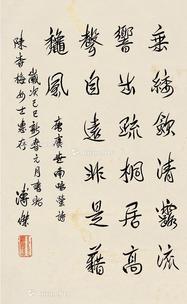 垂緌飲清露流
響出疏桐居高
聲自遠非是藉
秋風
唐虞世南咏蟬詩
歲次己巳新春元月書祝
陳香梅女士惠存 溥傑